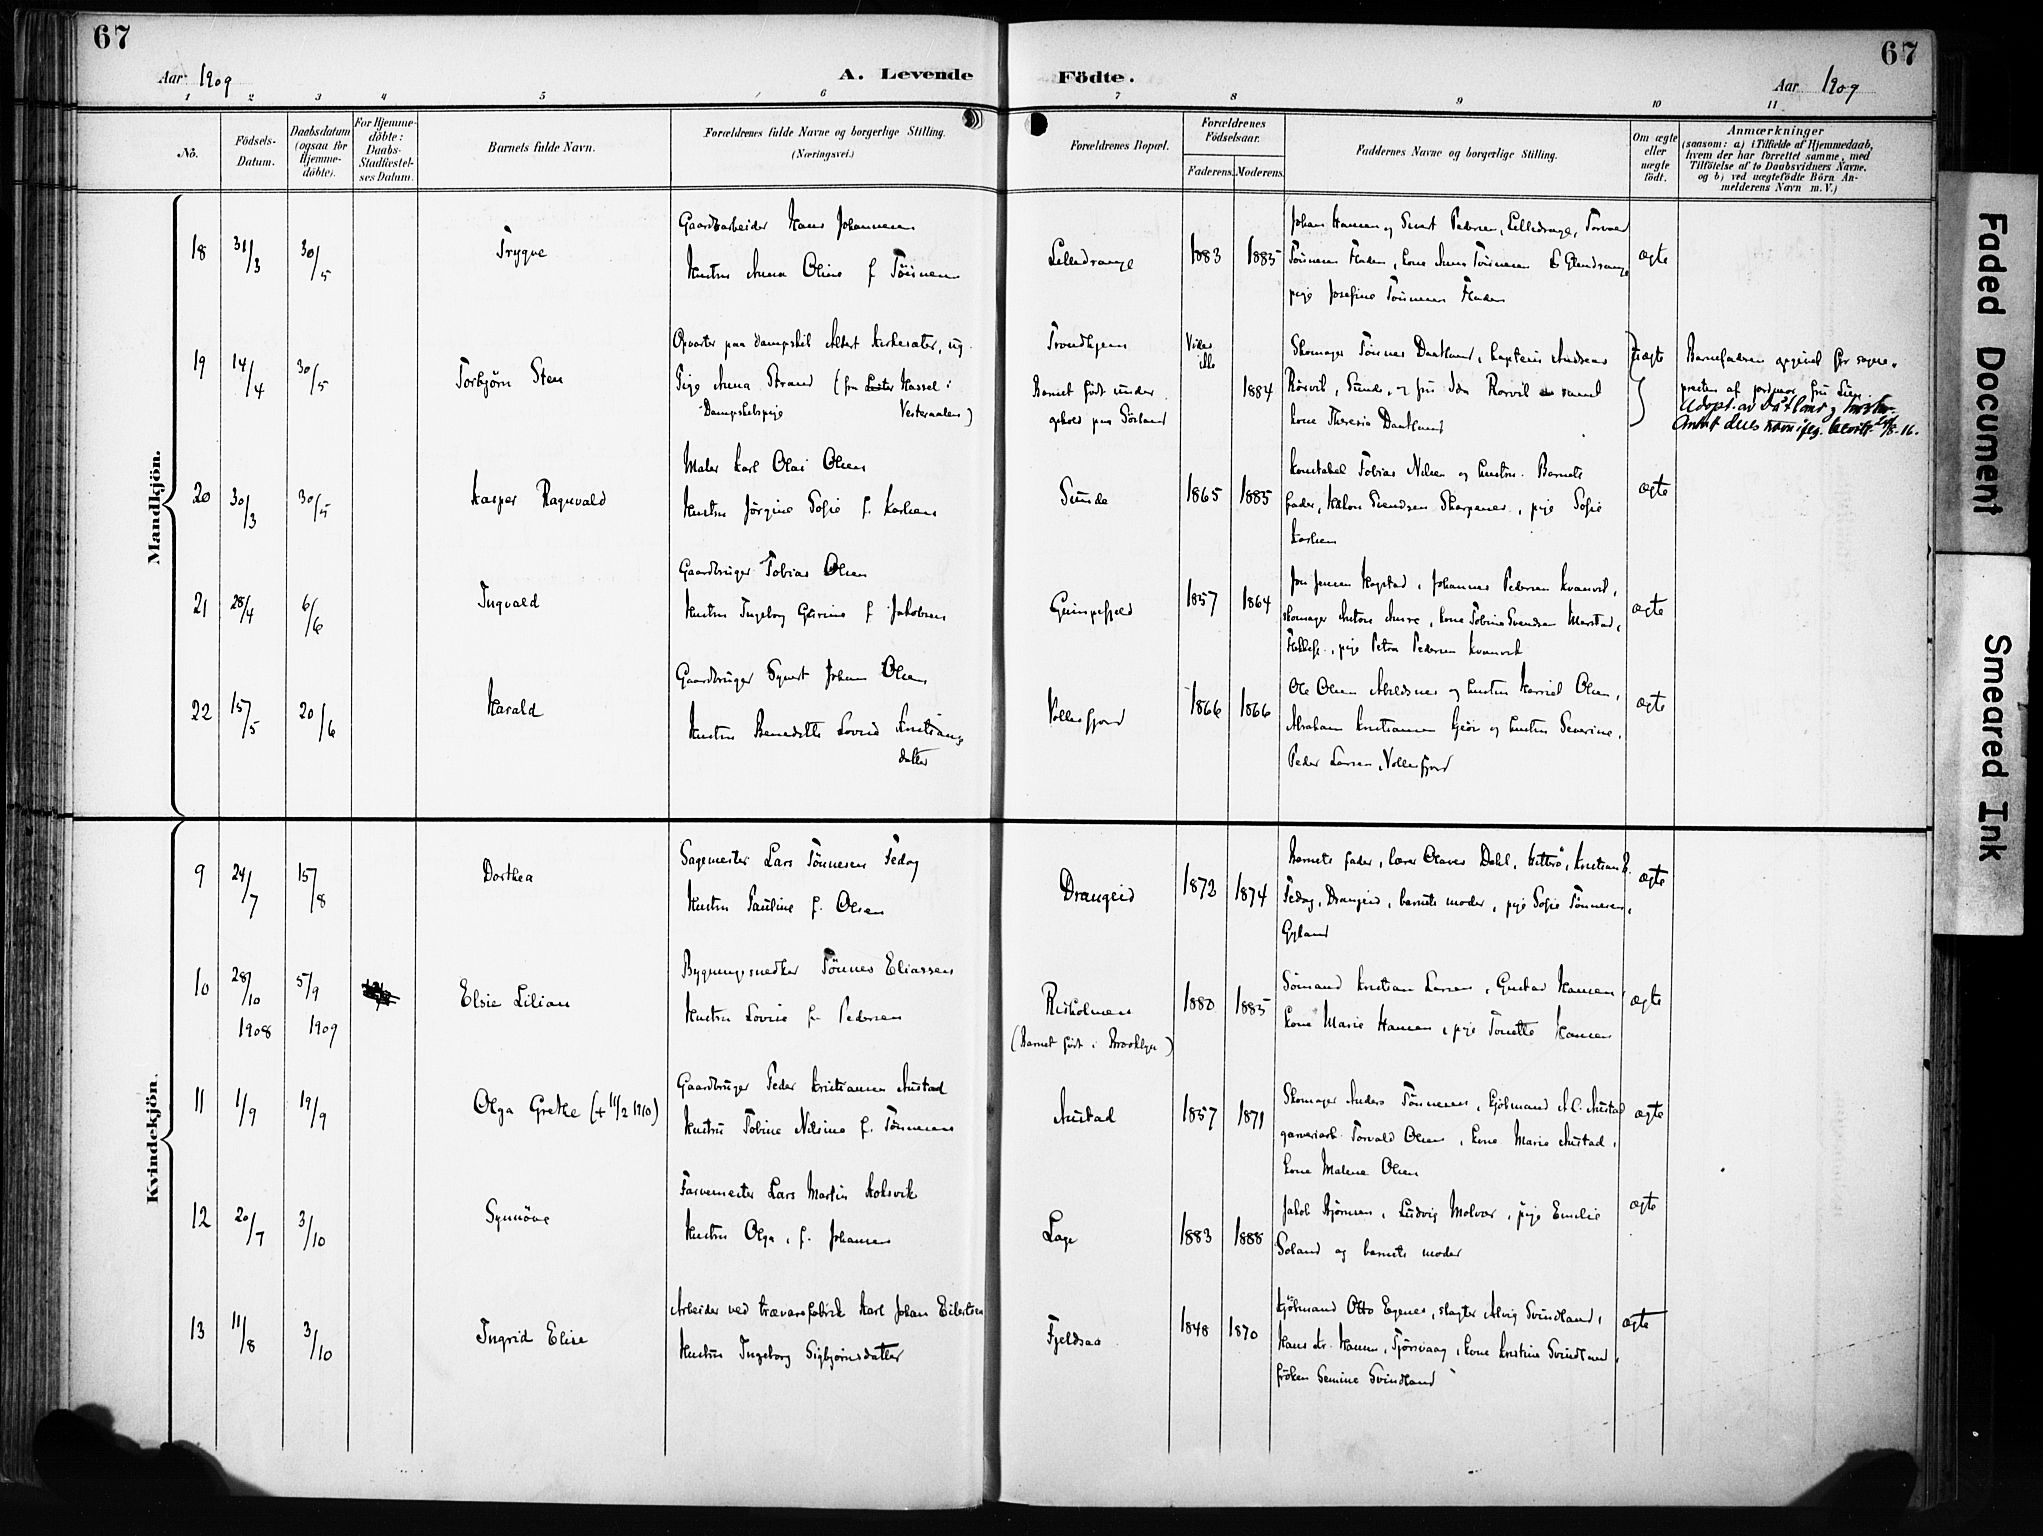 67
67
Aar 1909
A. Levende
Födte.
Aar 1909
1 2 3 4 5 6 7 8 9 10 11
No.
Födsels-
Datum.
Daabsdatum
(ogsaa for
Hjemme-
döbte).
For Hjemme-
döbte:
Daabs-
Stadfæstel-
ses Datum.
Barnets fulde Navn.
Forældrenes fulde Navne og borgerlige Stilling.
(Næringsvei.)
Forældrenes Bopæl.
Forældrenes
Födselsaar.
Faderens. Moderens.
Faddernes Navne og borgerlige Stilling.
Om ægte
eller
uægte
födt.
Anmærkninger
(saasom: a) i Tilfælde af Hjemmedaab,
hvem der har forrettet samme, med
Tilföielse af to Daabsvidners Navne.
og b) ved uægtefödte Börn An-
melderens Navn m. V.)
Mandkjön.
18 31/3 30/5 Trygve
Gaardarbeider Hans Johannesen
Hustru Anna Oline f. Tönnesen
Lilledrange 1883 1885
Johan Hansen og Sivert Pedersen, Lilledrange, Torvald
Tönnesen Fladen, kone Anne Tönnesen
pige Josefine Tönnesen Fladen
ægte
19 14/4 30/5 Torbjörn Sten
Opvarter paa dampskib Albert Kirkesæter, ug.
Pige Anna Strand (fra Hassel i
Dampskibspige Vesteraalen)
Trondhjem
Barnet födt under
ophold paa Sörland
Vides
ikke
1884
Skomager Tönnes Daatland, kaptein Andreas
Rörvik, Sunde, og fru Ida Rörvik samt
kone Theresia Daatland
uægte
Barnefaderen opgivet for sogne-
presten af jordmor fru Lien
Adopt. av Dåtland og hustru.
20 30/3 30/5 Kasper Ragnvald
Maler Karl Olai Olsen
Hustru Jörgine Sofie f. Karlsen
Sunde 1865 1885
Konstabel Tobias Nilsen og hustru. Barnets
fader, Håkon Svendsen Skarpenes, pige Sofie
Karlsen
ægte
21 28/4 6/6 Ingvald
Gaardbruger Tobias Olsen
Hustru Ingeborg Gurine f. Jakobsen
Guimpefjeld 1857 1864
Jon Jensen Hogstad, Johannes Pedersen Kvanvik,
skomager Anton Amre, kone Tobine Svendsen Marstad,
Flekkef., pige Petra Pedersen Kvanvik
ægte
22 15/5 20/6 Harald
Gaardbruger Sigvart Johan Olsen
Hustru Benedikte Lovise Kristians
datter
Vollesfjord 1866 1866
Ole Olsen Abelsnes og hustru Harriet Olsen,
Abraham Kristiansen Gjöse og hustru Severine,
Peder Larsen, Vollesfjord
ægte
Kvindekjön.
9 24/7 15/8 Dorthea
Sagmester Lars Tönnesen Fedog
Hustru Pauline f. Olsen
Drangeid 1872 1874
Barnets fader, lærer Olaves Dahl, Hitterö, Kristian B.
Fedog, Drangeid, barnets moder, pige Sofie Tönnesen,
Gyland
ægte
10 28/10 1908 5/9 1909 Elsie Lilian
Bygningssnedker Tönnes Eliassen
Hustru Lovise f. Pedersen
Risholmen
(Barnet födt i Brooklyn)
1880 1885
Sömand Kristian Larsen, Gustav Hansen,
kone Marie Hansen, pige Tonette Hansen
ægte
11 1/9 19/9 Olga Grethe (+ 11/2 1910)
Gaardbruger Peder Kristiansen Austad
Hustru Tobine Nilsine f. Tönnesen
Austad 1857 1871
Skomager Anders Tönnesen, kjöbmand A.C. Austad
garveriarb. Torvald Olsen, kone Marie Austad,
kone Malene Olsen
ægte
12 20/7 3/10 Synnöve
Farvemester Lars Martin Aaksvik
Hustru Olga, f. Johansen
Loge 1883 1888
Jakob Björnsen, Ludvig Molvær, pige Emilie
Soland og barnets moder
ægte
13 11/8 3/10 Ingrid Elise
Arbeider ved trævarefabrik Karl Johan Eilertsen
Hustru Ingeborg Sigbjörnsdatter
Fjeldsaa 1848 1870
Kjöbmand Otto Egenes, slagter Alvig Svindland,
Hans Kr. Hansen, Tjörsvaag, kone Kristine Svindland,
fröken Semine Svindland
ægte
Faded Document
Smeared Ink